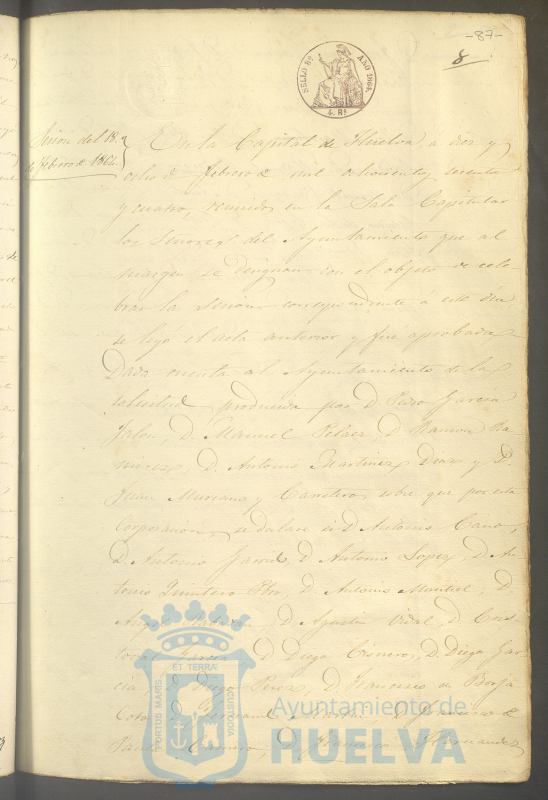 -87-
8
SELLO 8º AÑO 1864.
4. Rs
Sesion del 18
de Febrero de 1864
En la Capital de Huelva a diez y
ocho de febrero de mil ochocientos sesenta
y cuatro, reunidos en la Sala Capitular
los Señores del Ayuntamiento que al
margen se designan con el objeto de cele
brar la sesion correspondiente á este dia
se leyó el acta anterior y fue aprobada
Dada cuenta al Ayuntamiento de la
solicitud producida por D. Pedro Garcia
Jalon, D. Manuel Pelaez, D. Ramon Ra
mirez, D. Antonio Martinez Diaz y D.
Juan Muriano y Carretero sobre que por esta
Corporacion se declare si D. Antonio Cano,
D. Antonio D. Antonio Lopez, D. An
tonio Quintero Pbro, D. Antonio Montiel, D.
D. Agustin Vidal, D. Cris
tobal Garcia, D. Diego Cisneros, D. Diego Gar
cia, D. Diego Perez, D. Francisco de Borja
Coto, D. Fernando Martin, D. Francisco de
Paula D. Francisco Hernandez
PORTUS MARIS ET TERRÆ CUSTODIA
Ayuntamiento de
HUELVA